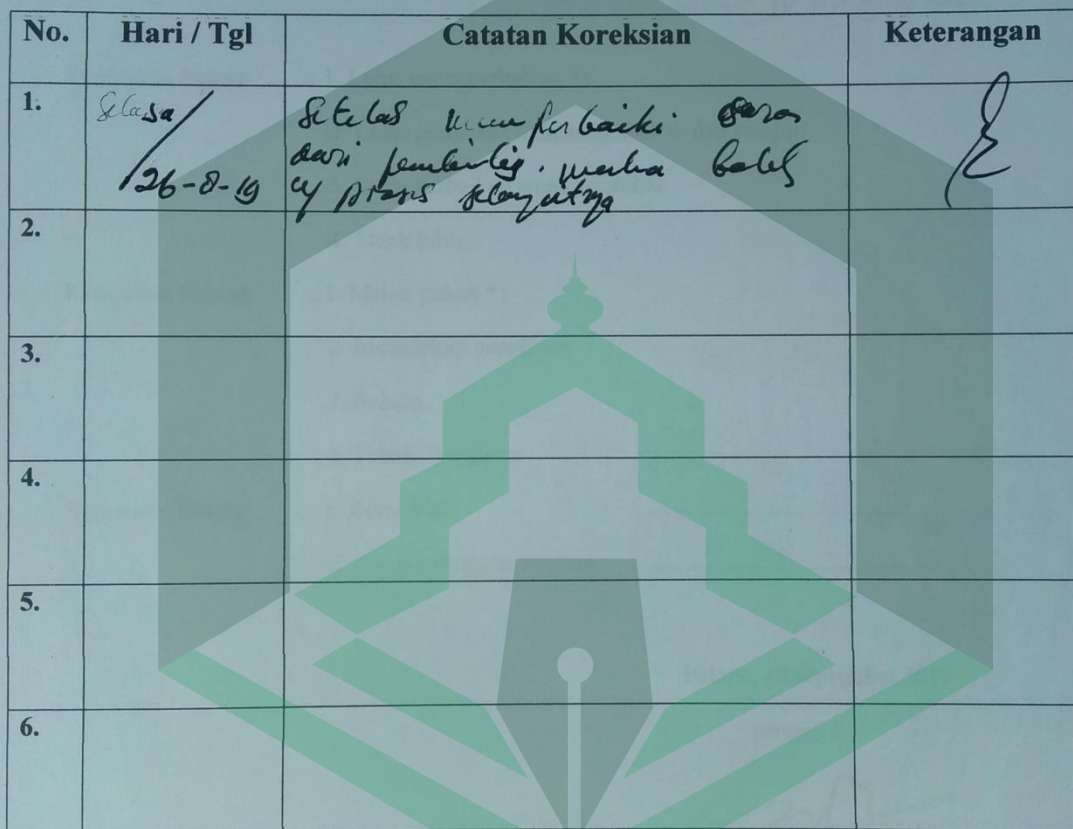 No. Hari / Tgl Catatan Koreksian Keterangan
1. Selasa/ Setelah memperbaiki saran
dari pembimbing. maka boleh
26-8-19 proses selanjutnya
2.
3.
4.
5.
6.